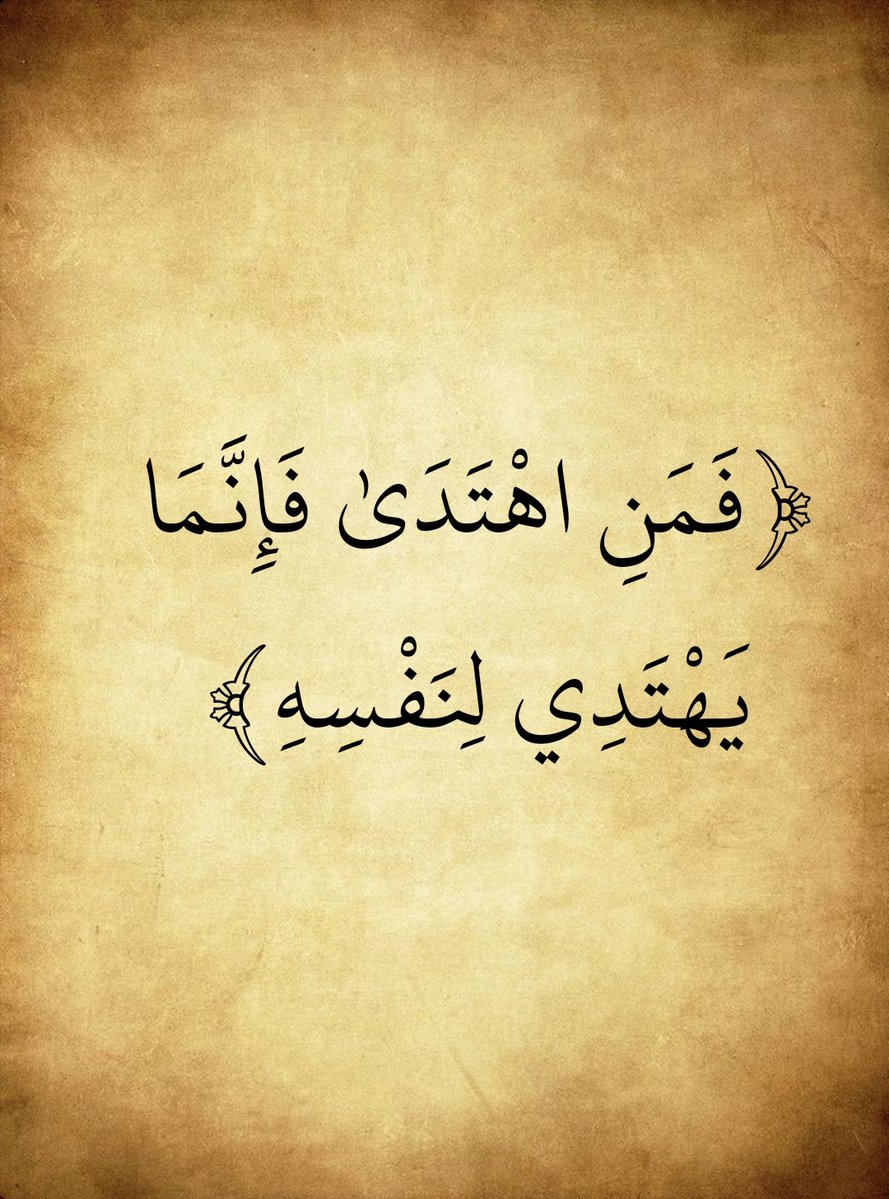 ﴿فَمَنِ اهْتَدَىٰ فَإِنَّمَا
يَهْتَدِي لِنَفْسِهِ﴾